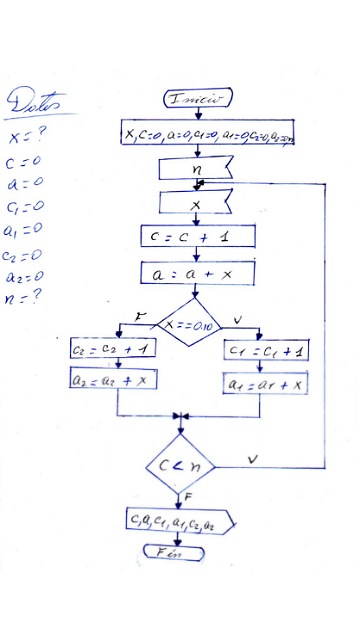 Datos
x = ?
c = 0
a = 0
c1 = 0
a1 = 0
c2 = 0
a2 = 0
n = ?
Inicio
x, c=0, a=0, c1=0, a1=0, c2=0, a2=0, n
n
x
c = c + 1
a = a + x
F
x == 0.10
V
c2 = c2 + 1
c1 = c1 + 1
a2 = a2 + x
a1 = a1 + x
c < n
V
F
c, a, c1, a1, c2, a2
Fin